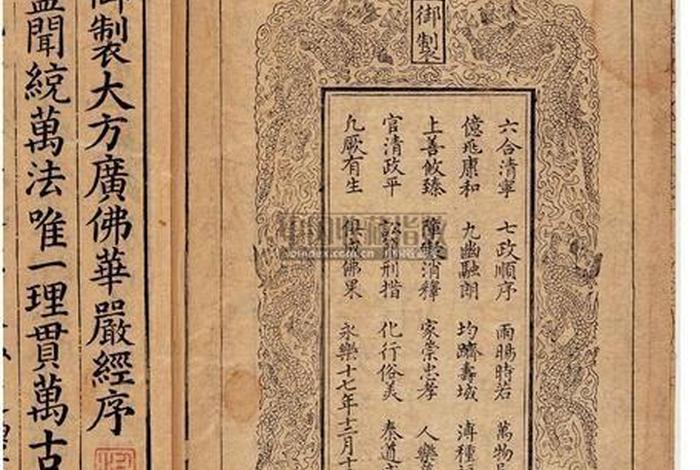 御製
六合清寧 七政順序 雨暘時若 萬物
億兆康和 九幽融朗 均躋壽域 溥種
上善攸臻 障礙消釋 家崇忠孝 人樂
官清政平 訟簡刑措 化行俗美 泰道
凡厥有生 俱成佛果 永樂十七年十二月十
御製大方廣佛華嚴經序
蓋聞統萬法唯一理貫萬古